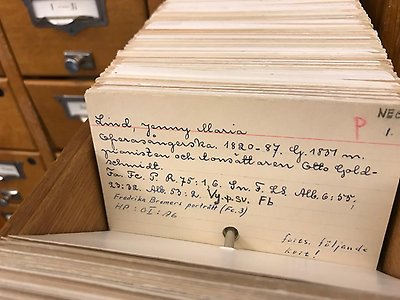 P
NEC
1.
Lind, Jenny Maria
Operasångerska. 1820-87. Gg. 1837 m.
pianisten och tonsättaren Otto Gold-
schmidt.
Fa. Fc. P. R 75:1,6. Sn. F. LS Alb. 6:55;
23:32. Alb. 53:2. Vy. p. sv. Fb
Fredrika Bremers porträtt (Fc. 3)
HP:DI:A6
forts. följande
kort!